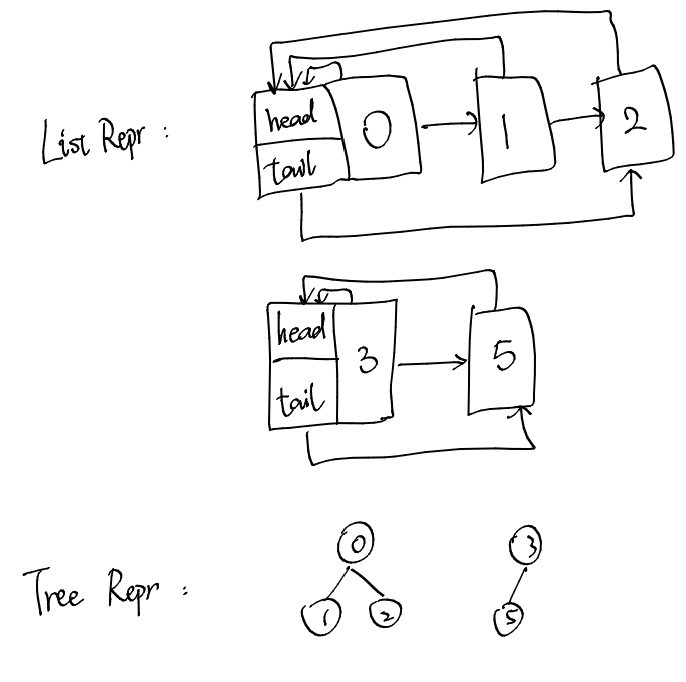 List Repr :
head
tail
0
1
2
head
tail
3
5
Tree Repr :
0
1
2
3
5